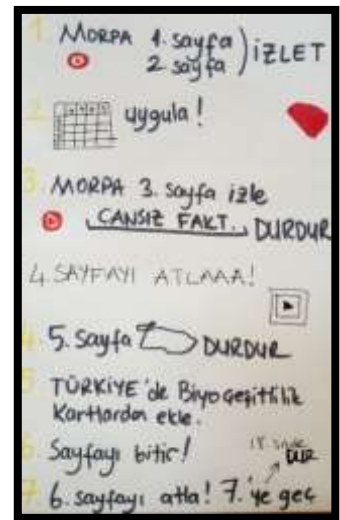 1. MORPA 1. sayfa
2. sayfa ) İZLET
2. uygula!
3. MORPA 3. sayfa izle
CANSIZ FAKT. DURDUR
4. SAYFAYI ATLAAA!
4. 5. Sayfa DURDUR
5. TÜRKİYE'de Biyoçeşitlilik
Kartlardan ekle.
6. Sayfayı bitir!
DUR
7. 6. sayfayı atla! 7.'ye geç